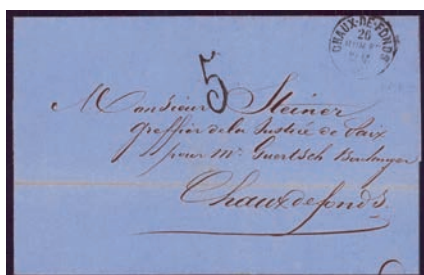 CHAUX-DE-FONDS
26
5
Monsieur Steiner
greffier de la Justice de Paix
pour Mr. Guertsch Boulanger
Chaux de fonds